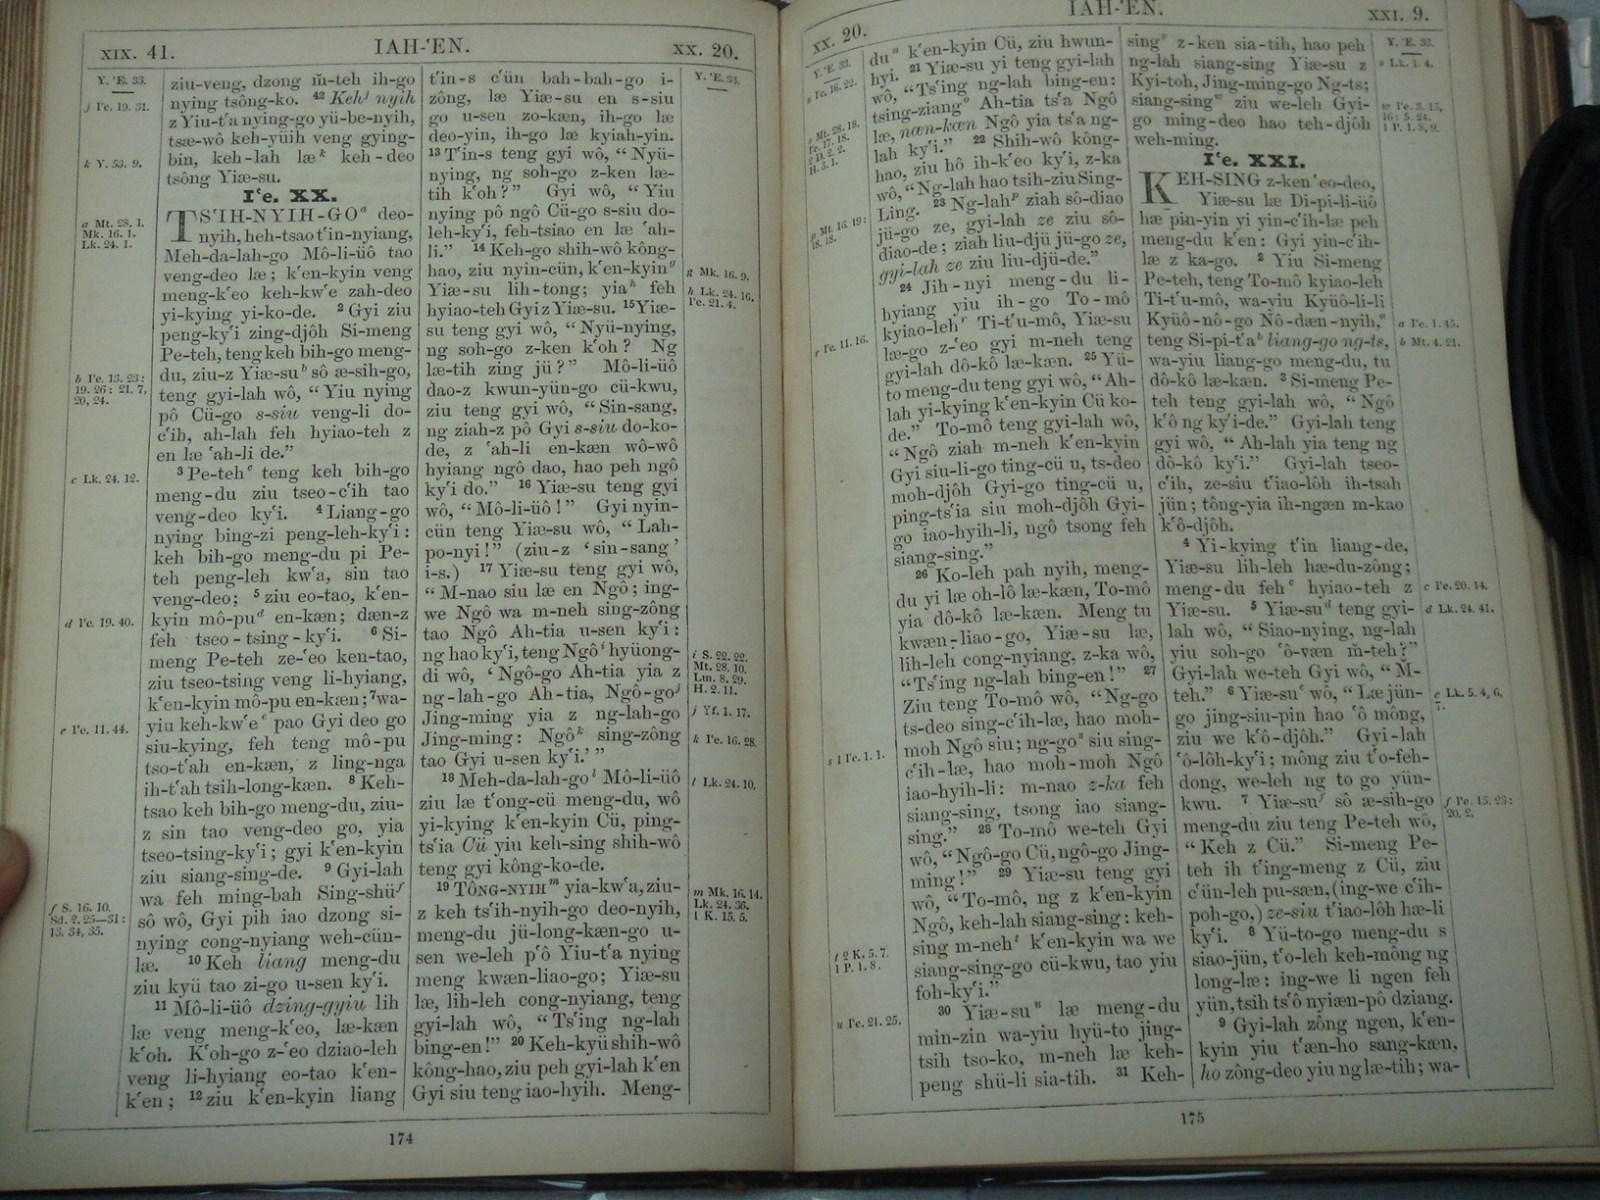 XIX. 41.
IAH-‛EN.
XX. 20.
Y. ‛E. 33.
j I‛e. 19. 31.
k Y. 53. 9.
a Mt. 28. 1.
Mk. 16. 1.
Lk. 24. 1.
b I‛e. 13. 23:
19. 26: 21. 7,
20, 24.
c Lk. 24. 12.
d I‛e. 19. 40.
e I‛e. 11. 44.
f S. 16. 10.
Sd. 2. 25—31:
13. 34, 35.
ziu-veng, dzong m̄-teh ih-go
nying tsông-ko. 42 Kehʲ nyih
z Yiu-t‛a nying-go yü-be-nyih,
tsæ-wô keh-yüih veng gying-
bin, keh-lah læᵏ keh-deo
tsông Yiæ-su.
I‛e. XX.
TS‛IH-NYIH-GOᵃ deo-
nyih, heh-tsao t‛in-nyiang,
Meh-da-lah-go Mô-li-üô tao
veng-deo læ; k‛en-kyin veng
meng-k‛eo keh-kw‛e zah-deo
yi-kying yi-ko-de. 2 Gyi ziu
peng-ky‛i zing-djôh Si-meng
Pe-teh, teng keh bih-go meng-
du, ziu-z Yiæ-suᵇ sô æ-sih-go,
teng gyi-lah wô, “Yiu nying
pô Cü-go s-siu veng-li do-
c‛ih, ah-lah feh hyiao-teh z
en læ ‛ah-li de.”
3 Pe-tehᶜ teng keh bih-go
meng-du ziu tseo-c‛ih tao
veng-deo ky‛i. 4 Liang-go
nying bing-zi peng-leh-ky‛i:
keh bih-go meng-du pi Pe-
teh peng-leh kw‛a, sin tao
veng-deo; 5 ziu eo-tao, k‛en-
kyin mô-puᵈ en-kæn; dæn-z
feh tseo-tsing-ky‛i. 6 Si-
meng Pe-teh ze-‛eo ken-tao,
ziu tseo-tsing veng li-hyiang,
k‛en-kyin mô-pu en-kæn; 7 wa-
yiu keh-kw‛eᵉ pao Gyi deo go
siu-kying, feh teng mô-pu
tso-t‛ah en-kæn, z ling-nga
ih-t‛ah tsih-long-kæn. 8 Keh-
tsao keh bih-go meng-du, ziu-
z sin tao veng-deo go, yia
tseo-tsing-ky‛i; gyi k‛en-kyin
ziu siang-sing-de. 9 Gyi-lah
wa feh ming-bah Sing-shüᶠ
sô wô, Gyi pih iao dzong si-
nying cong-nyiang weh-cün-
læ. 10 Keh liang meng-du
ziu kyü tao zi-go u-sen ky‛i.
11 Mô-li-üô dzing-gyiu lih
læ veng meng-k‛eo, læ-kæn
k‛oh. K‛oh-go z-‛eo dziao-leh
veng li-hyiang eo-tao k‛en-
k‛en; 12 ziu k‛en-kyin liang
t‛in-s c‛ün bah-bah-go i-
zông, læ Yiæ-su en s-siu
go u-sen zo-kæn, ih-go læ
deo-yin, ih-go læ kyiah-yin.
13 T‛in-s teng gyi wô, “Nyü-
nying, ng soh-go z-ken læ-
tih k‛oh?” Gyi wô, “Yiu
nying pô ngô Cü-go s-siu do-
leh-ky‛i, feh-tsiao en læ ‛ah-
li.” 14 Keh-go shih-wô kông-
hao, ziu nyin-cün, k‛en-kyinᵍ
Yiæ-su lih-tong; yiaʰ feh
hyiao-teh Gyi z Yiæ-su. 15 Yiæ-
su teng gyi wô, “Nyü-nying,
ng soh-go z-ken k‛oh? Ng
læ-tih zing jü?” Mô-li-üô
dao-z kwun-yün-go cü-kwu,
ziu teng gyi wô, “Sin-sang,
ng ziah-z pô Gyi s-siu do-ko-
de, z ‛ah-li en-kæn wô-wô
hyiang ngô dao, hao peh ngô
ky‛i do.” 16 Yiæ-su teng gyi
wô, “Mô-li-üô!” Gyi nyin-
cün teng Yiæ-su wô, “Lah-
po-nyi!” (ziu-z ‘sin-sang’
i-s.) 17 Yiæ-su teng gyi wô,
“M-nao siu læ en Ngô; ing-
we Ngô wa m-neh sing-zông
tao Ngô Ah-tia u-sen ky‛i:
ng hao ky‛i, teng Ngôⁱ hyüong-
di wô, ‘Ngô-go Ah-tia yia z
ng-lah-go Ah-tia, Ngô-goʲ
Jing-ming yia z ng-lah-go
Jing-ming: Ngôᵏ sing-zông
tao Gyi u-sen ky‛i.’”
18 Meh-da-lah-goˡ Mô-li-üô
ziu læ t‛ong-cü meng-du, wô
yi-kying k‛en-kyin Cü, ping-
ts‛ia Cü yiu keh-sing shih-wô
teng gyi kông-ko-de.
19 TÔNG-NYIHᵐ yia-kw‛a, ziu-
z keh ts‛ih-nyih-go deo-nyih,
meng-du jü-long-kæn-go u-
sen we-leh p‛ô Yiu-t‛a nying
meng kwæn-liao-go; Yiæ-su
læ, lih-leh cong-nyiang, teng
gyi-lah wô, “Ts‛ing ng-lah
bing-en!” 20 Keh-kyü shih-wô
kông-hao, ziu peh gyi-lah k‛en
Gyi siu teng iao-hyih. Meng-
Y. ‛E. 33.
g Mk. 16. 9.
h Lk. 24. 16.
I‛e. 21. 4.
i S. 22. 22.
Mt. 28. 10.
Lm. 8. 29.
H. 2. 11.
j Yf. 1. 17.
k I‛e. 16. 28.
l Lk. 24. 10.
m Mk. 16. 14.
Lk. 24. 36.
1 K. 15. 5.
174
XX. 20.
IAH-‛EN.
XXI. 9.
Y. ‛E. 33.
n I‛e. 16. 22.
o Mt. 28. 18.
I‛e. 17. 18.
2 D. 2. 2.
H. 3. 1.
p Mt. 16. 19:
18. 18.
r I‛e. 11. 16.
s 1 I‛e. 1. 1.
t 2 K. 5. 7.
1 P. 1. 8.
u I‛e. 21. 25.
duⁿ k‛en-kyin Cü, ziu hwun-
hyi. 21 Yiæ-su yi teng gyi-lah
wô, “Ts‛ing ng-lah bing-en:
tsing-ziangᵒ Ah-tia ts‛a Ngô
læ, næn-kæn Ngô yia ts‛a ng-
lah ky‛i.” 22 Shih-wô kông-
hao, ziu hô ih-k‛eo ky‛i, z-ka
wô, “Ng-lah hao tsih-ziu Sing-
Ling. 23 Ng-lahᵖ ziah sô-diao
jü-go ze, gyi-lah ze ziu sô-
diao-de; ziah liu-djü jü-go ze,
gyi-lah ze ziu liu-djü-de.”
24 Jih-nyi meng-du li-
hyiang yiu ih-go To-mô
kyiao-lehʳ Ti-t‛u-mô, Yiæ-su
læ-go z-‛eo gyi m-neh teng
gyi-lah dô-kô læ-kæn. 25 Yü-
to meng-du teng gyi wô, “Ah-
lah yi-kying k‛en-kyin Cü ko-
de.” To-mô teng gyi-lah wô,
“Ngô ziah m-neh k‛en-kyin
Gyi siu-li-go ting-cü u, ts-deo
moh-djôh Gyi-go ting-cü u,
ping-ts‛ia siu moh-djôh Gyi-
go iao-hyih-li, ngô tsong feh
siang-sing.”
26 Ko-leh pah nyih, meng-
du yi læ oh-lô læ-kæn, To-mô
yia dô-kô læ-kæn. Meng tu
kwæn-liao-go, Yiæ-su læ,
lih-leh cong-nyiang, z-ka wô,
“Ts‛ing ng-lah bing-en!” 27
Ziu teng To-mô wô, “Ng-go
ts-deo sing-c‛ih-læ, hao moh-
moh Ngô siu; ng-goˢ siu sing-
c‛ih-læ, hao moh-moh Ngô
iao-hyih-li: m-nao z-ka feh
siang-sing, tsong iao siang-
sing.” 28 To-mô we-teh Gyi
wô, “Ngô-go Cü, ngô-go Jing-
ming!” 29 Yiæ-su teng gyi
wô, “To-mô, ng z k‛en-kyin
Ngô, keh-lah siang-sing: keh-
sing m-nehᵗ k‛en-kyin wa we
siang-sing-go cü-kwu, tao yiu
foh-ky‛i.”
30 Yiæ-suᵘ læ meng-du
min-zin wa-yiu hyü-to jing-
tsih tso-ko, m-neh læ keh-
peng shü-li sia-tih. 31 Keh-
singᵛ z-ken sia-tih, hao peh
ng-lah siang-sing Yiæ-su z
Kyi-toh, Jing-ming-go Ng-ts;
siang-singʷ ziu we-leh Gyi-
go ming-deo hao teh-djôh
weh-ming.
I‛e. XXI.
KEH-SING z-ken ‛eo-deo,
Yiæ-su læ Di-pi-li-üô
hæ pin-yin yi yin-c‛ih-læ peh
meng-du k‛en: Gyi yin-c‛ih-
læ z ka-go. 2 Yiu Si-meng
Pe-teh, teng To-mô kyiao-leh
Ti-t‛u-mô, wa-yiu Kyüô-li-li
Kyüô-nô-go Nô-dæn-nyih,ᵃ
teng Si-pi-t‛aᵇ liang-go ng-ts,
wa-yiu liang-go meng-du, tu
dô-kô læ-kæn. 3 Si-meng Pe-
teh teng gyi-lah wô, “Ngô
k‛ô ng ky‛i-de.” Gyi-lah teng
gyi wô, “Ah-lah yia teng ng
dô-kô ky‛i.” Gyi-lah tseo-
c‛ih, ze-siu t‛iao-lôh ih-tsah
jün; tông-yia ih-ngæn m-kao
k‛ô-djôh.
4 Yi-kying t‛in liang-de,
Yiæ-su lih-leh hæ-du-zông;
meng-du fehᶜ hyiao-teh z
Yiæ-su. 5 Yiæ-suᵈ teng gyi-
lah wô, “Siao-nying, ng-lah
yiu soh-go ‛ô-væn m̄-teh?”
Gyi-lah we-teh Gyi wô, “M-
teh.” 6 Yiæ-suᵉ wô, “Læ jün-
go jing-siu-pin hao ‛ô mông,
ziu we k‛ô-djôh.” Gyi-lah
‛ô-lôh-ky‛i; mông ziu t‛o-feh-
dong, we-leh ng to go yün-
kwu. 7 Yiæ-suᶠ sô æ-sih-go
meng-du ziu teng Pe-teh wô,
“Keh z Cü.” Si-meng Pe-
teh ih t‛ing-meng z Cü, ziu
c‛ün-leh pu-sæn, (ing-we c‛ih-
poh-go,) ze-siu t‛iao-lôh hæ-li
ky‛i. 8 Yü-to-go meng-du s
siao-jün, t‛o-leh keh-mông ng
long-læ: ing-we li ngen feh
yün, tsih ts‛ô nyiæn-pô dziang.
9 Gyi-lah zông ngen, k‛en-
kyin yiu t‛æn-ho sang-kæn,
ho zông-deo yiu ng læ-tih; wa-
Y. ‛E. 33.
v Lk. 1. 4.
w I‛e. 3. 15,
16: 5. 24.
1 P. 1. 8, 9.
a I‛e. 1. 45.
b Mt. 4. 21.
c I‛e. 20. 14.
d Lk. 24. 41.
e Lk. 5. 4, 6,
7.
f I‛e. 13. 23:
20. 2.
175